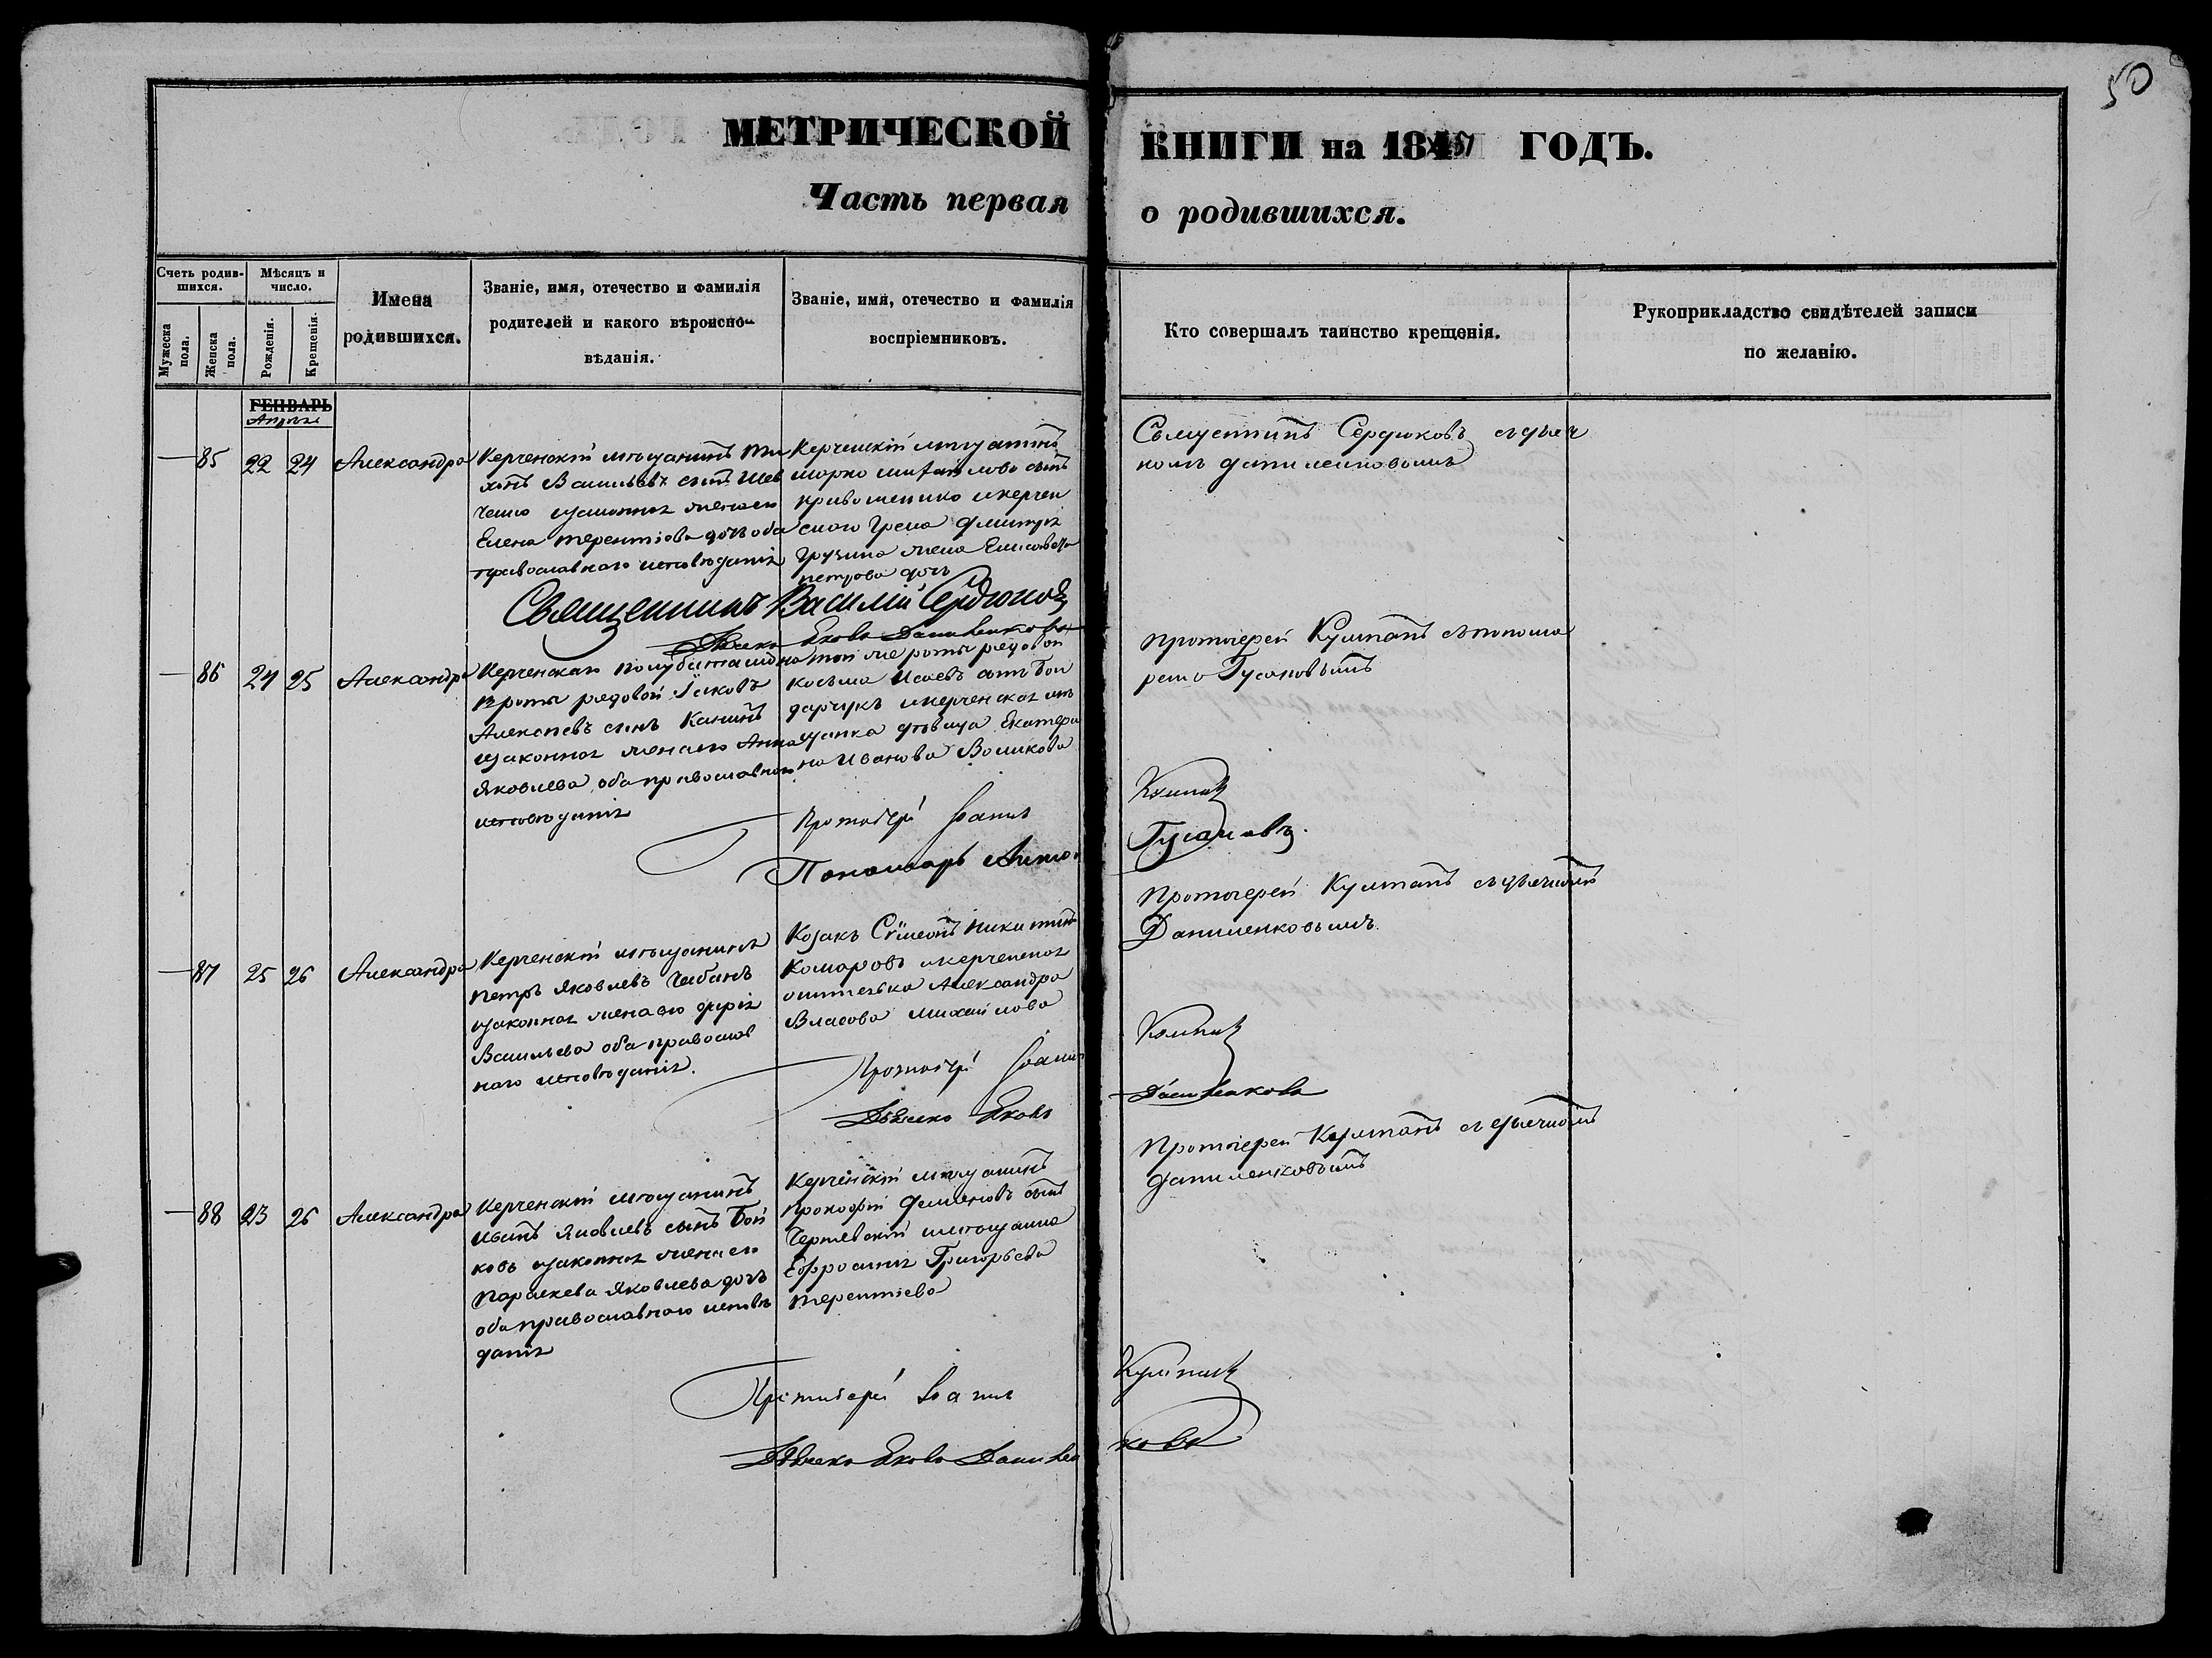 50
МЕТРИЧЕСКОЙ КНИГИ на 1857 ГОДЪ.
Часть первая о родившихся.
Счетъ родив-
шихся.
Мѣсяцъ и
число.
Мужеска
пола.
Женска
пола.
Рожденія.
Крещенія.
Имена
родившихся.
Званіе, имя, отечество и фамилія
родителей и какого вѣроиспо-
вѣданія.
Званіе, имя, отечество и фамилія
воспріемниковъ.
Кто совершалъ таинство крещенія.
Рукоприкладство свидѣтелей записи
по желанію.
ГЕНВАРЬ
Апрѣль
85 22 24 Александра
Керченскій мѣщанинъ Ти
хонъ Васильевъ сынъ Шев
ченко изаконная женаего
Елена Терентіева дочь оба
православнаго исповѣданія
Керченскій мѣщанинъ
Марко Михайловъ сынъ
Кривошенко икерчен
скаго Грека Дмитрія
Грузина жена Елисавета
петрова дочь
Священникъ Сердюковъ съдьяч
комъ даниленковымъ
Священникъ Василій Сердюковъ
Дьячекъ Яковъ Даниленковъ
86 24 25 Александра
Керченскаго полубаталіона
роты рядовой Іаковъ
Алексѣевъ сынъ Канинъ
изаконная женаего Анна
Яковлева, оба православнаго
исповѣданія
той же роты рядовой
Косьма Исаевъ сынъ Бон
дарчукъ икерченская мѣ
щанка дѣвица Екатери
на Иванова Воликова
Протоіерей Кумпанъ съпонома
ремъ Гусаковымъ
Протоіерей Іоаннъ Кумпанъ
Пономарь Гусаковъ.
87 25 26 Александра
Керченскій мѣщанинъ
петръ Яковлевъ Чабанъ
изаконная женаего дарія
Васильева оба православ
наго исповѣданія.
Козакъ Сѵмеонъ Никитинъ
Комаровъ икерченская
жителька Александра
Власова Михайлова
Протоіерей Кумпанъ съдьячкомъ
Даниленковымъ
Протоіерей Іоаннъ Кумпанъ
Дьячекъ Яковъ Даниленковъ
88 23 26 Александра
Керченскій мѣщанинъ
Иванъ Яковлевъ сынъ Бой
ковъ изаконная женаего
Параскева Яковлева дочь
оба православнаго исповѣ
данія
Керченскій мѣщанинъ
Прокофій Семеновъ сынъ
Чернявскій имѣщанка
Ефросинія Григорьева
Терентіева
Протоіерей Кумпанъ съдьячкомъ
даниленковымъ
Протоіерей Іоаннъ Кумпанъ
Дьячекъ Яковъ Даниленковъ